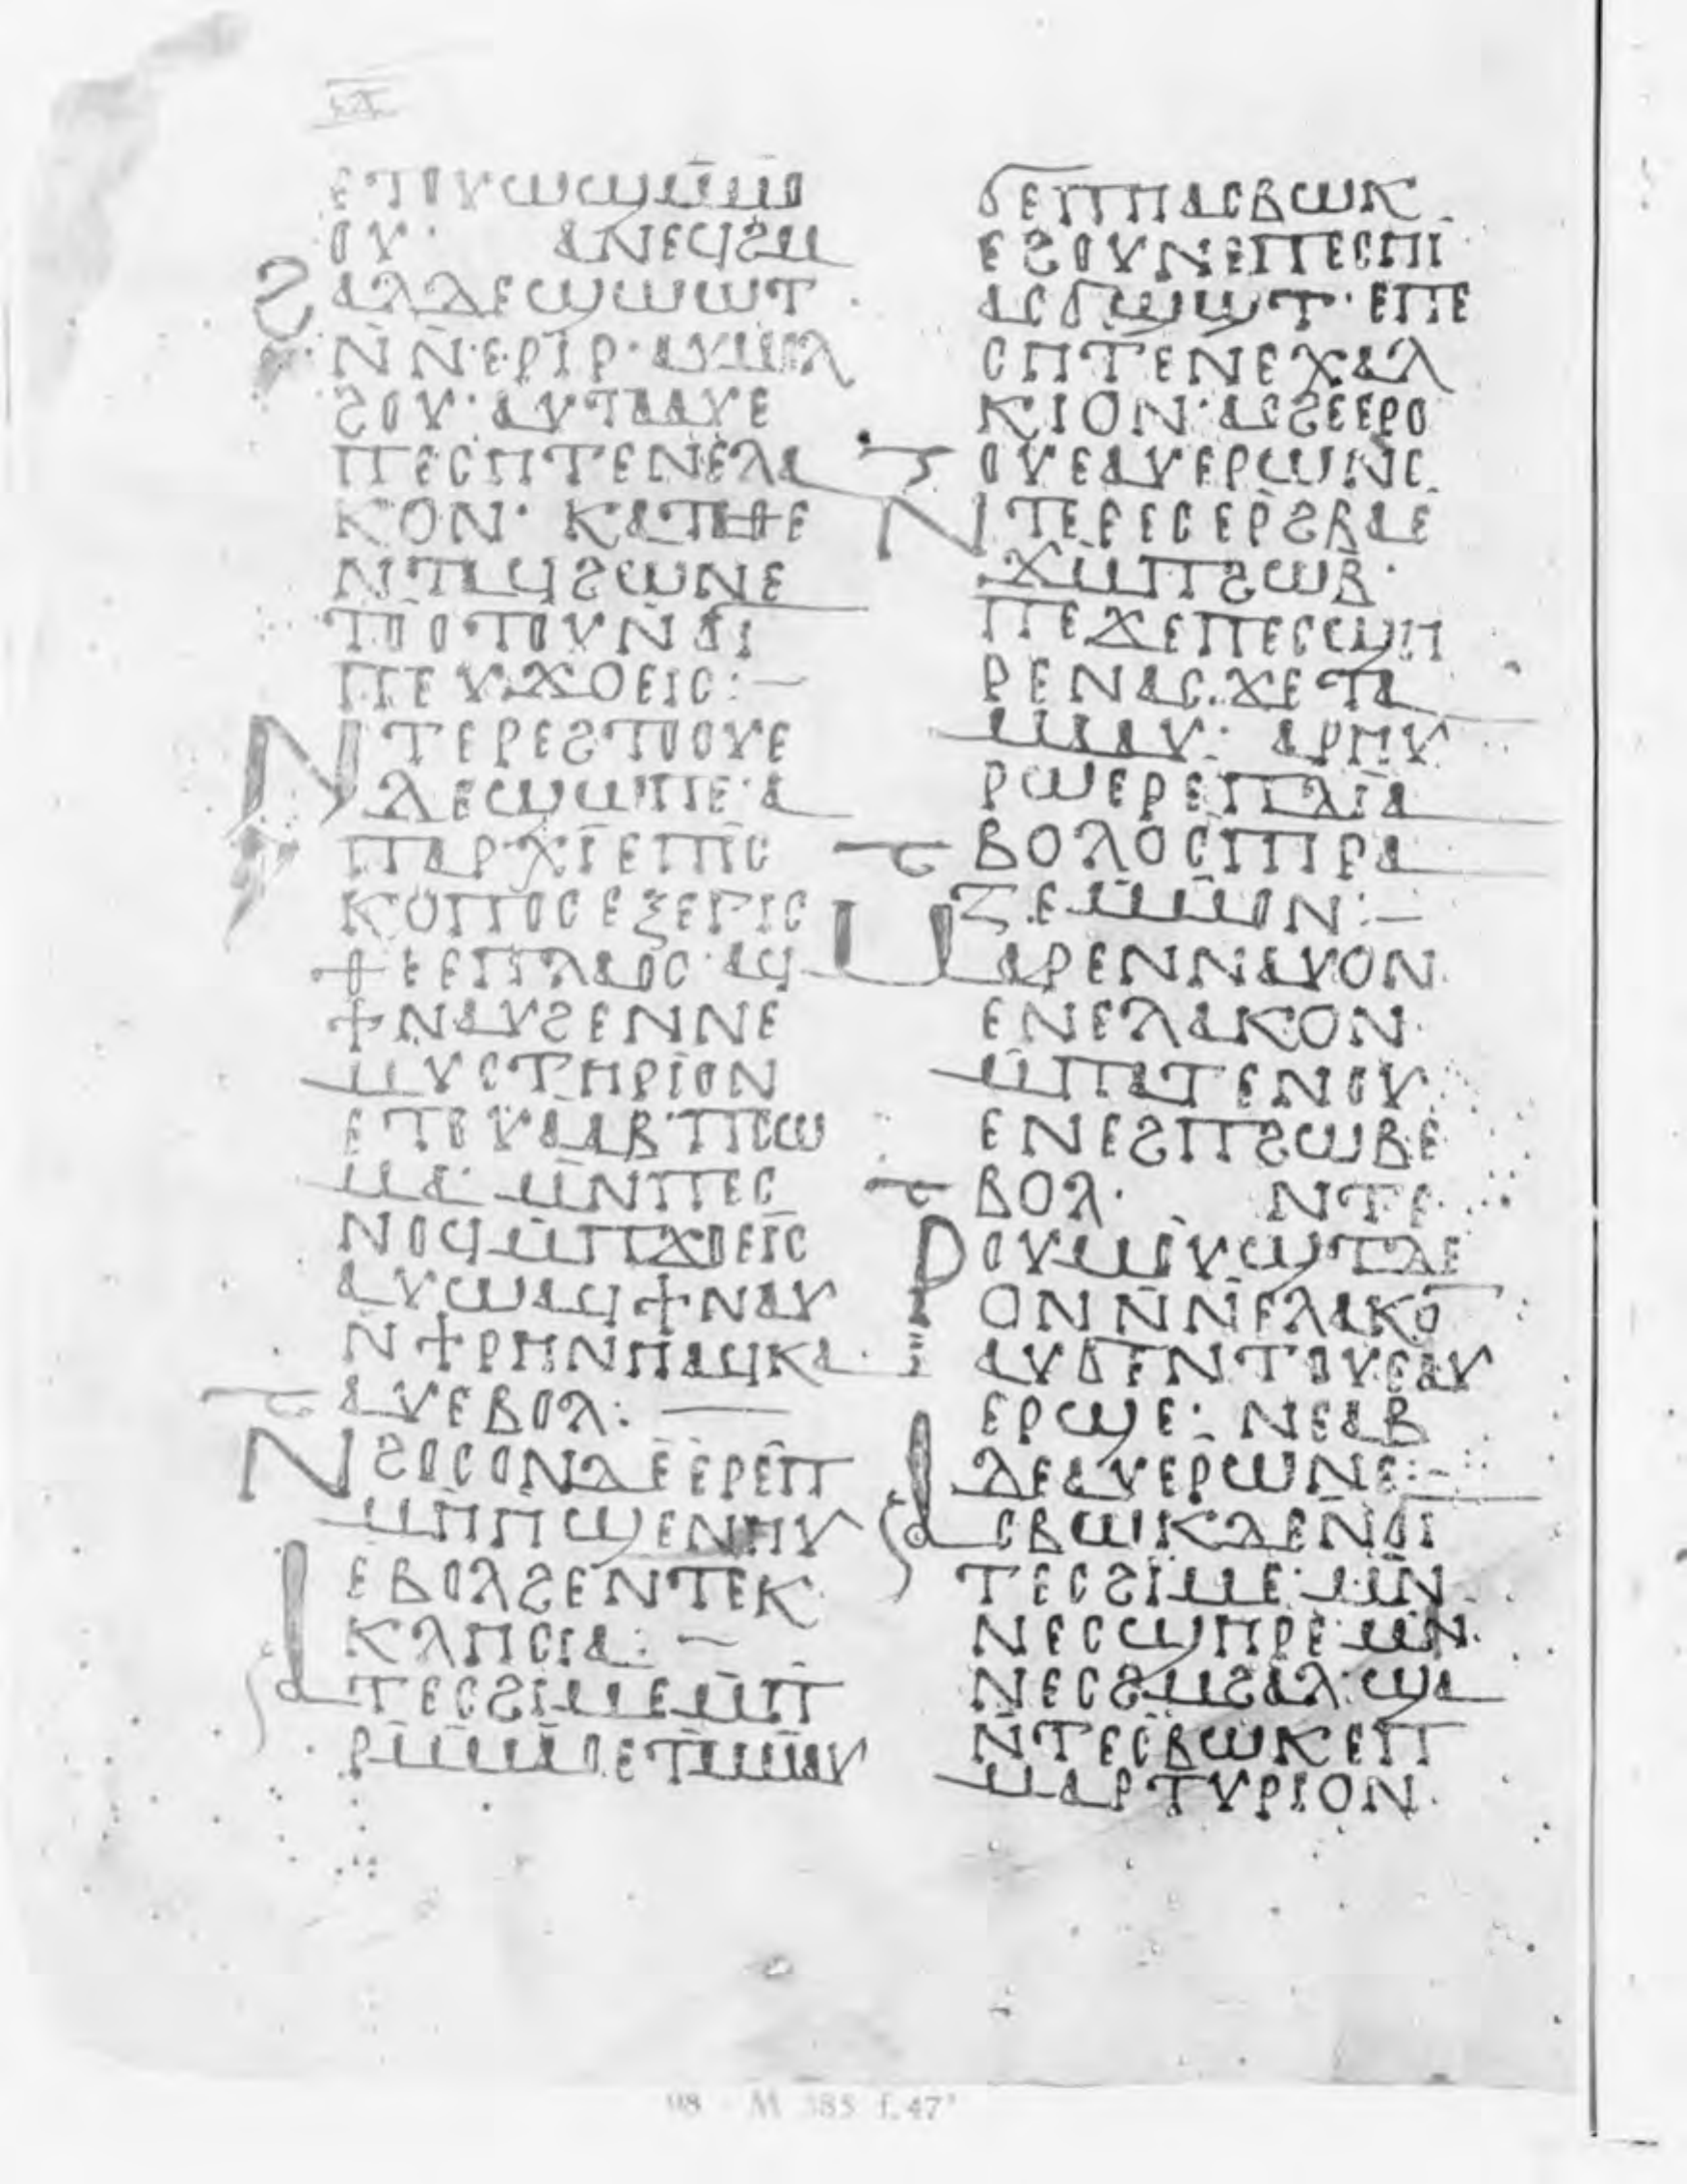 ⲉⲧⲟⲩⲱϣⲙ̄ⲙⲟ
ⲟⲩ· ⲁⲛⲉϥϩⲙ
ϩⲁⲗⲇⲉϣⲱⲱⲧ
ⲛ̀ⲛ̀ⲉⲣⲓⲣ· ⲁⲩⲙⲟⲗ
ϩⲟⲩ· ⲁⲩⲧⲁⲁⲩⲉ
ⲡⲉⲥⲏⲧⲉⲛⲉⲗⲁ
ⲕⲟⲛ· ⲕⲁⲧⲁⲑⲉ
ⲛⲧⲁϥϩⲱⲛⲉ
ⲧⲟⲟⲧⲟⲩⲛ̄ϭⲓ
ⲡⲉⲩϫⲟⲉⲓⲥ:—
ⲛⲧⲉⲣⲉϩⲧⲟⲟⲩⲉ
ⲇⲉϣⲱⲡⲉ·ⲁ
ⲡⲁⲣⲭⲓⲉⲡⲓⲥ
ⲕⲟⲡⲟⲥⲉⲝⲉⲅⲓⲥ
ⲑⲉⲉⲡⲗⲁⲟⲥ· ⲁϥ
ϯⲛⲁⲩϩⲉⲛⲛⲉ
ⲙⲩⲥⲧⲏⲣⲓⲟⲛ
ⲉⲧⲟⲩⲁⲁⲃ·ⲡⲥⲱ
ⲙⲁ· ⲙⲛ̄ⲡⲉⲥ
ⲛⲟϥⲙ̄ⲡϫⲟⲉⲓⲥ
ⲁⲩⲱⲁϥϯⲛⲁⲩ
ⲛ̄ϯⲣⲏⲛⲏⲁϥⲕⲁ
ⲁⲩⲉⲃⲟⲗ: —
ⲛϩⲟⲥⲟⲛⲇⲉⲉⲣⲉⲡ
ⲙⲏⲏϣⲉⲛⲏⲩ
ⲉⲃⲟⲗϩⲉⲛⲧⲉⲕ
ⲕⲗⲏⲥⲓⲁ: —
ⲁⲧⲉⲥϩⲓⲙⲉⲙ̄ⲡ
ⲣⲙ̄ⲙⲁⲟⲉⲧⲙ̄ⲙⲁⲩ
ϭⲉⲡⲏⲁⲥⲃⲱⲕ
ⲉϩⲟⲩⲛⲉⲡⲉⲥⲏⲓ
ⲁⲥϭⲱϣⲧ· ⲉⲡⲉ
ⲥⲏⲧⲉⲛⲉⲭⲁⲗ
ⲕⲓⲟⲛ· ⲁⲥϩⲉⲉⲣⲟ
ⲟⲩⲉⲁⲩⲉⲣⲱⲛⲉ
ⲛⲧⲉⲣⲉⲥⲉⲣϩⲃⲁⲉ
ϫⲙ̄ⲡϩⲱⲃ·
ⲡⲉϫⲉⲡⲉⲥϣⲏ
ⲣⲉⲛⲁⲥ·ϫⲉⲧⲁ
ⲙⲁⲁⲩ: ⲁⲣⲏⲩ
ⲣⲱⲉⲣⲉⲡⲇⲓⲁ
ⲃⲟⲗⲟⲥⲡⲓⲣⲁ
ⲍⲉⲙ̄ⲙⲟⲛ:—
ⲙⲁⲣⲉⲛⲛⲁⲩⲟⲛ
ⲉⲛⲉⲗⲁⲕⲟⲛ
ⲙ̄ⲡⲁⲧⲉⲛⲟⲩ
ⲉⲛⲉϩⲡϩⲱⲃⲉ
ⲃⲟⲗ· ⲛⲧⲉ
ⲣⲟⲩⲙⲟⲩϣⲧⲇⲉ
ⲟⲛⲛ̄ⲛⲉⲗⲁⲕⲟ̄
ⲁⲩϭⲛⲧⲟⲩⲉⲁⲩ
ⲉⲣϣⲉ: ⲛⲉⲁⲃ
ⲇⲉⲁⲩⲉⲣⲱⲛⲉ:—
ⲁⲥⲃⲱⲕⲇⲉⲛ̄ϭⲓ
ⲧⲉⲥϩⲓⲙⲉ· ⲙⲛ̄
ⲛⲉⲥϣⲏⲣⲉ·ⲙⲛ̄
ⲛⲉⲥϩⲙϩⲁⲗ·ϣⲁ
ⲛ̄ⲧⲉⲥⲃⲱⲕⲉⲡ
ⲙⲁⲣⲧⲩⲣⲓⲟⲛ·
M 385 f. 47ᵛ